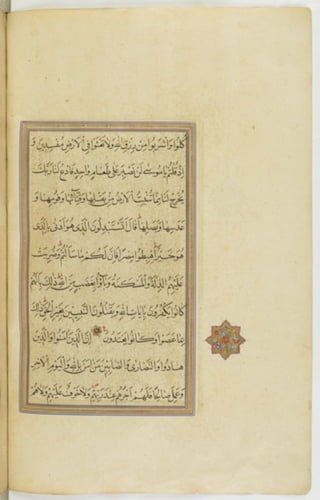 كلوا واشربوا من رزق الله ولا تعثوا في الارض مفسدين و
اذ قلتم يا موسى لن نصبر على طعام واحد فادع لنا ربك
يخرج لنا مما تنبت الارض من بقلها وقثائها وفومها و
عدسها وبصلها قال اتستبدلون الذى هو ادنى بالذى
هو خير اهبطوا مصرا فان لكم ما سالتم وضربت
عليهم الذلة والمسكنة وباؤا بغضب من الله ذلك بانهم
كانوا يكفرون بايات الله ويقتلون النبيين بغير الحق ذلك
بما عصوا وكانوا يعتدون ان الذين امنوا والذين
هادوا والنصارى والصابئين من امن بالله واليوم الاخر
وعمل صالحا فلهم اجرهم عند ربهم ولا خوف عليهم ولا هم